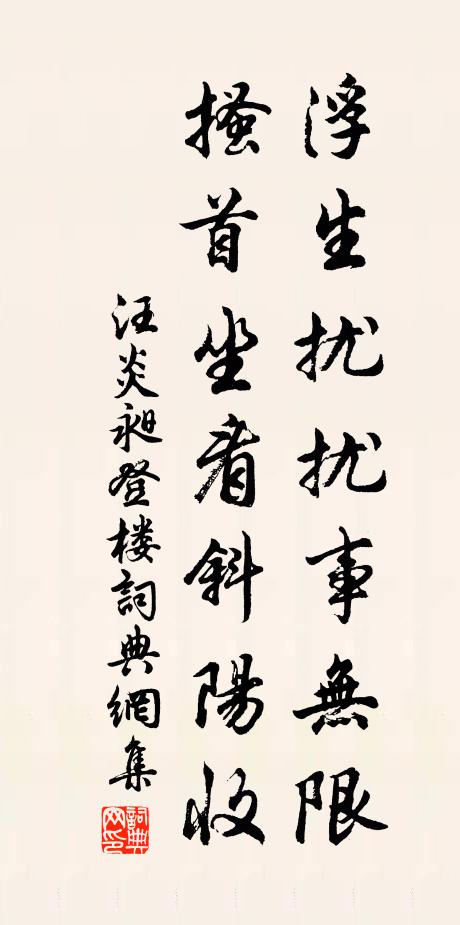 浮生扰扰事無限
搔首坐看斜陽收
汪炎昶登楼詞典網集
詞典網印